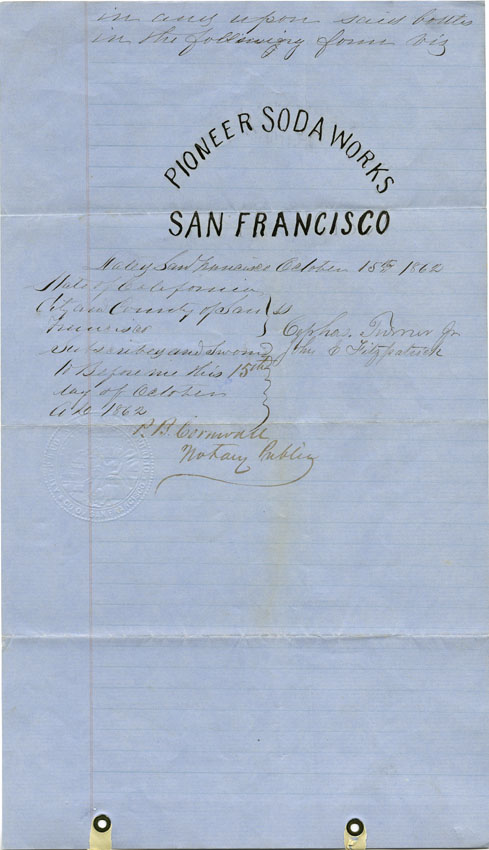 in and upon said bottles
in the following form viz
PIONEER SODA WORKS
SAN FRANCISCO
Dated San Francisco October 15th 1862
State of California
City and County of San } ss
Francisco
Subscribed and Sworn
to Before me this 15th
day of October
A D 1862
Cephas Turner Jr
John E Fitzpatrick
P. B. Cornwall
Notary Public